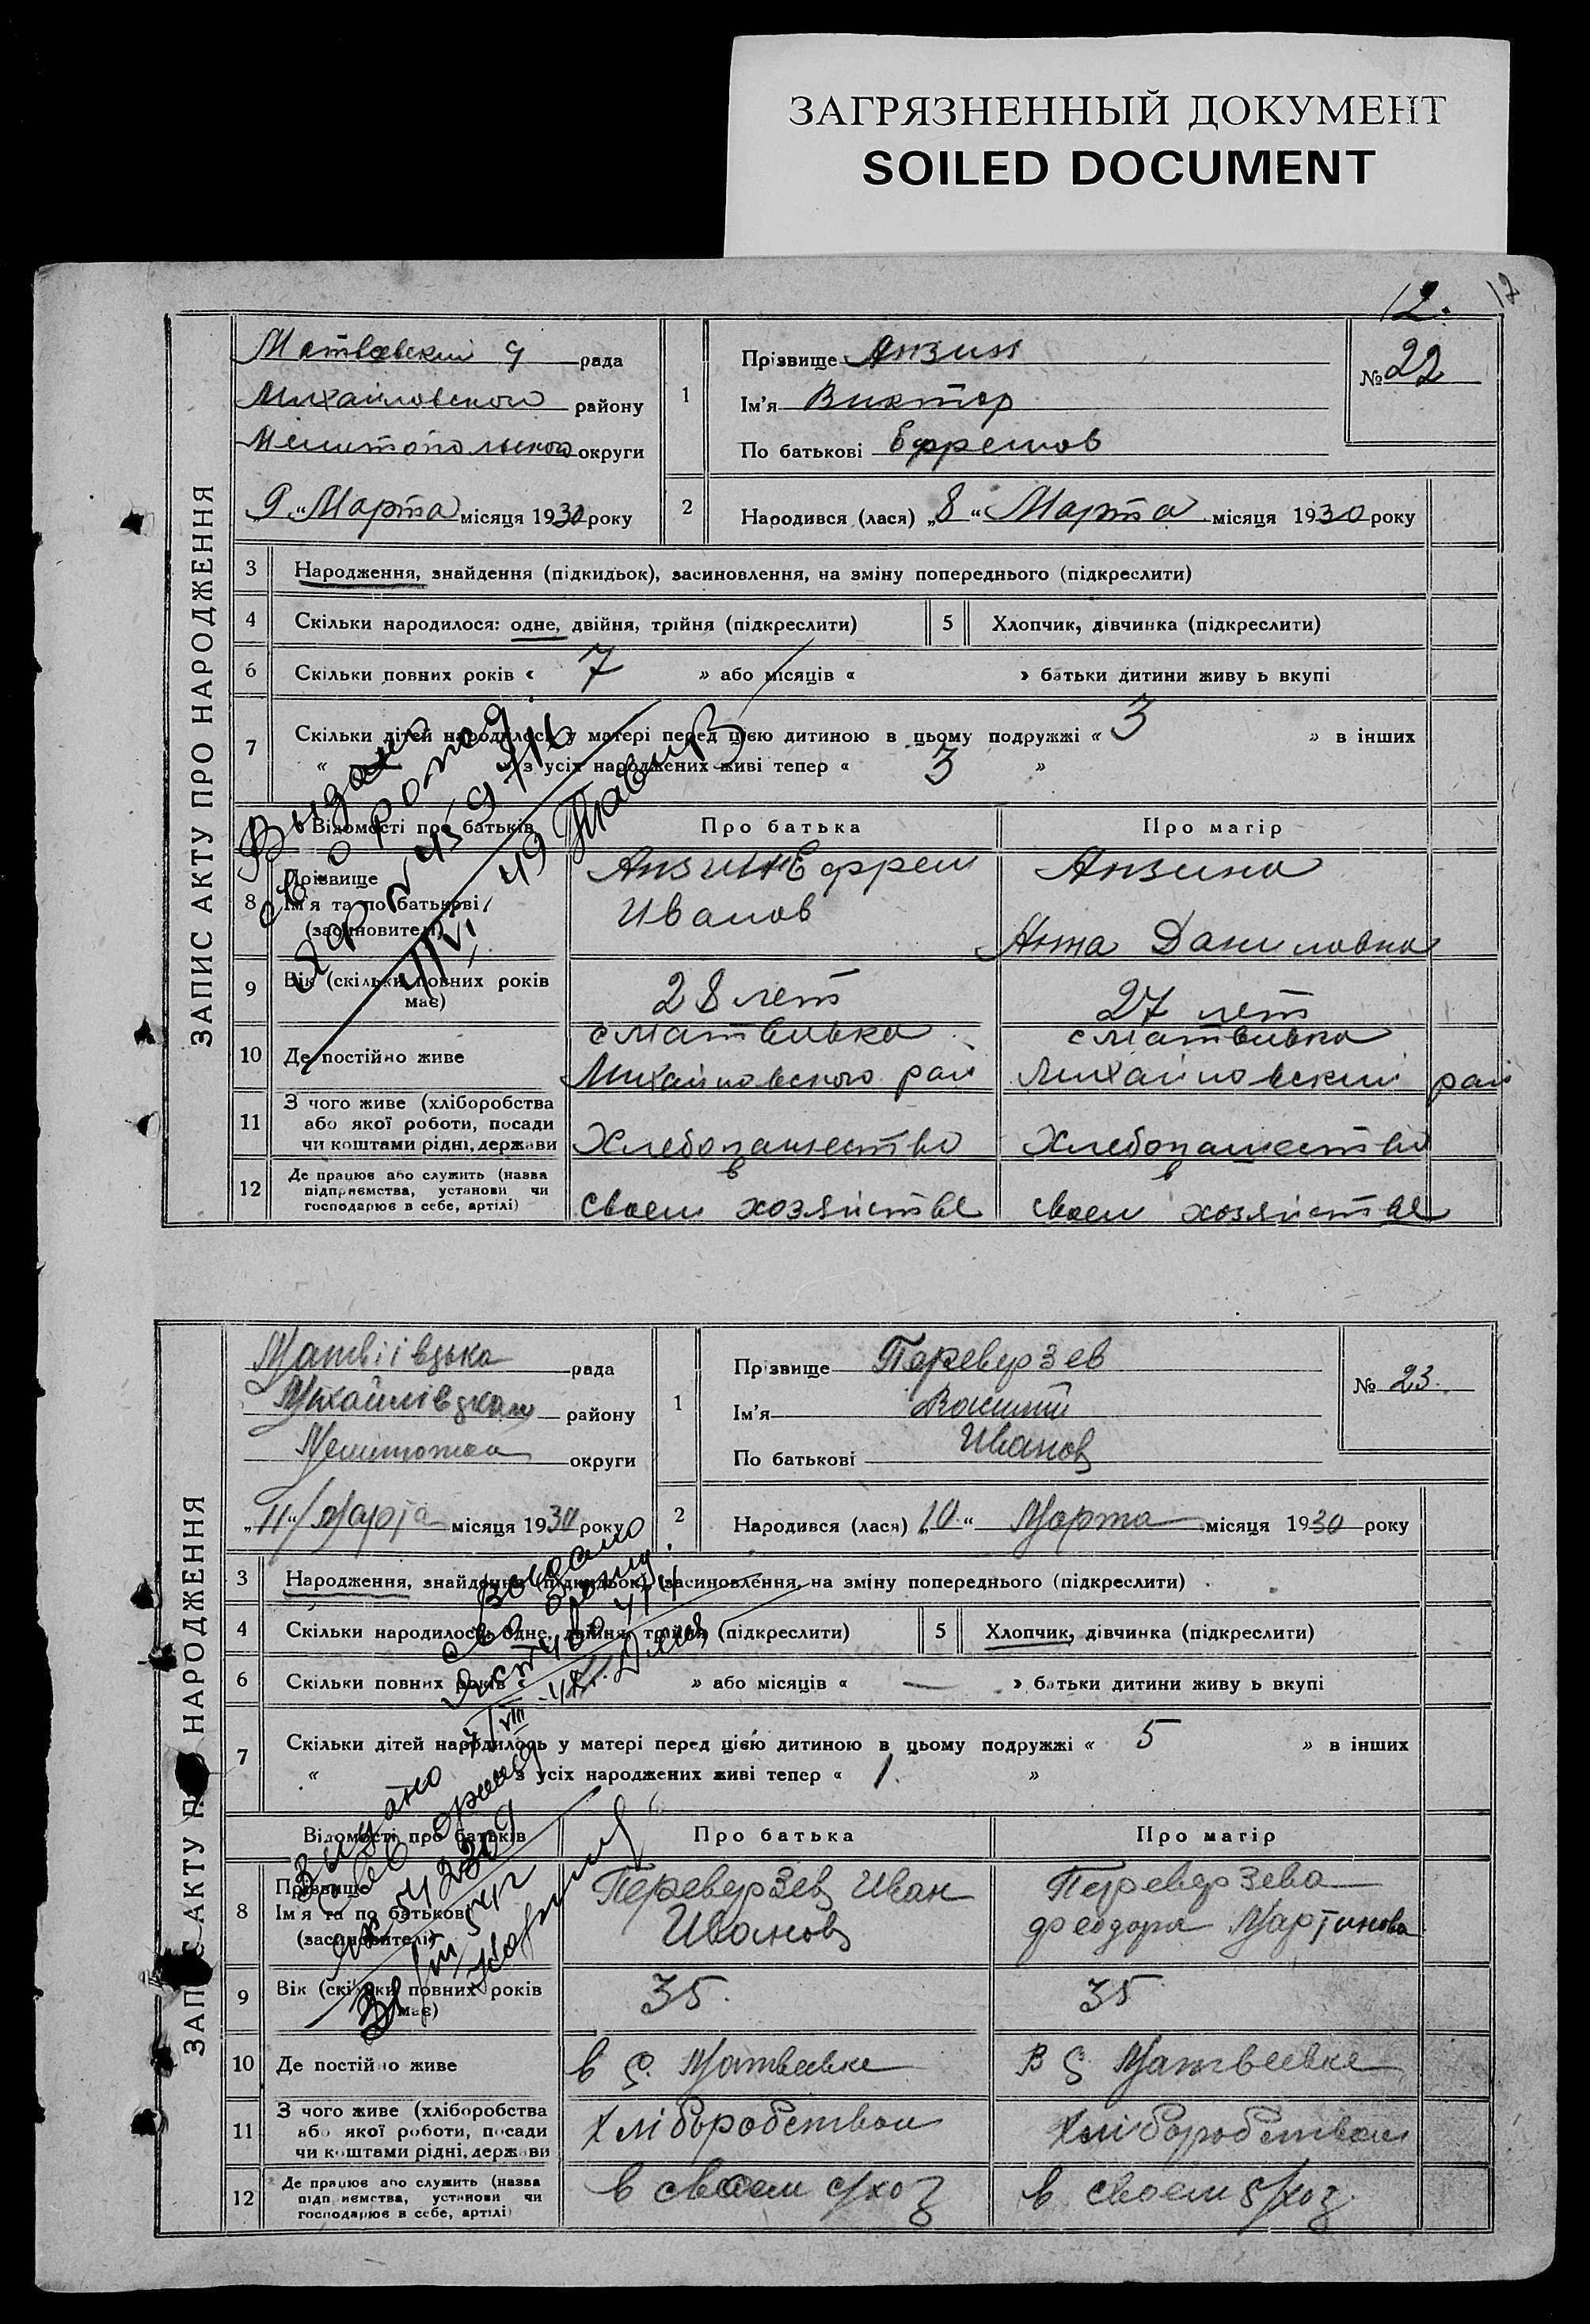 ЗАГРЯЗНЕННЫЙ ДОКУМЕНТ
SOILED DOCUMENT
12.
ЗАПИС АКТУ ПРО НАРОДЖЕННЯ
рада
Михайловского району
округи
„9“ Марта місяця 1930 року
1
Прізвище Анзин
Ім'я Виктор
По батькові Ефремов
№ 22
2
Народився (лася) „8“ Марта місяця 1930 року
3
Народження, знайдення (підкидьок), засиновлення, на зміну попереднього (підкреслити)
4
Скільки народилося: одне, двійня, трійня (підкреслити)
5
Хлопчик, дівчинка (підкреслити)
6
Скільки повних років « 7 » або місяців « » батьки дитини живу ь вкупі
7
Скільки дітей народилось у матері перед цією дитиною в цьому подружжі « 3 » в інших
« » з усіх народжених живі тепер « 3 »
Відомості про батьків
Про батька
Про матір
8
Прізвище
Ім'я та по батькові
(засиновителі)
Анзин Ефрем
Иванов
Анзина
Анна Даниловна
9
Вік (скільки повних років
має)
28 лет
27 лет
10
Де постійно живе
с Матвивка
Михайловского рай
с Матвивка
Михайловский рай
11
З чого живе (хліборобства
або якої роботи, посади
чи коштами рідні, держави
Хлебопашество
Хлебопашество
12
Де працює або служить (назва
підприємства, установи чи
господарює в себе, артілі)
в
своем хозяйстве
в
своем хозяйстве
ЗАПИС АКТУ ПРО НАРОДЖЕННЯ
Матвіївська рада
району
округи
„11“ Марта місяця 1930 року
1
Прізвище Переверзев
Ім'я
По батькові Иванов
№ 23.
2
Народився (лася) „10“ Марта місяця 1930 року
3
Народження, знайдення (підкидьок), засиновлення, на зміну попереднього (підкреслити)
4
Скільки народилося: одне, двійня, трійня (підкреслити)
5
Хлопчик, дівчинка (підкреслити)
6
Скільки повних років « » або місяців « — » батьки дитини живу ь вкупі
7
Скільки дітей народилось у матері перед цією дитиною в цьому подружжі « 5 » в інших
« з усіх народжених живі тепер « 1. »
Відомості про батьків
Про батька
Про матір
8
Прізвище
Ім'я та по батькові
(засиновителі)
Переверзев Иван
Иванов
Переверзева
Феодора Мартинова
9
Вік (скільки повних років
має)
35.
35
10
Де постійно живе
в с. Матвеевке
В с Матвеевке
11
З чого живе (хліборобства
або якої роботи, посади
чи коштами рідні, держави
Хліборобством
Хліборобством
12
Де працює або служить (назва
підприємства, установи чи
господарює в себе, артілі)
в своем с/хоз
в своем с/хоз.